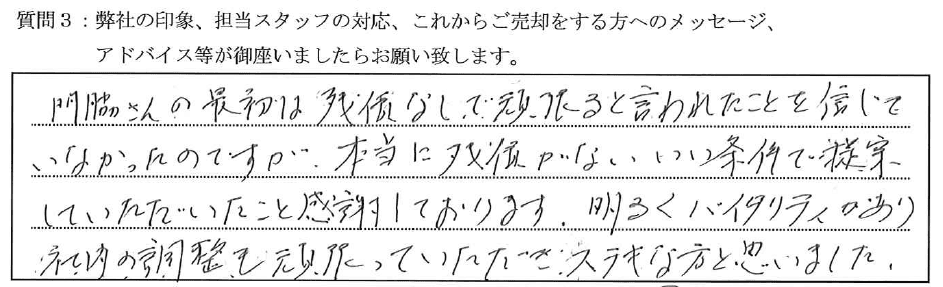 質問３：弊社の印象、担当スタッフの対応、これからご売却をする方へのメッセージ、
アドバイス等が御座いましたらお願い致します。
門脇さんの最初は残債なしで頑張ると言われたことを信じて
いなかったのですが、本当に残債がないいい条件で提案
していただいたこと感謝しております。明るくバイタリティがあり
社内の調整も頑張っていただきステキな方と思いました。